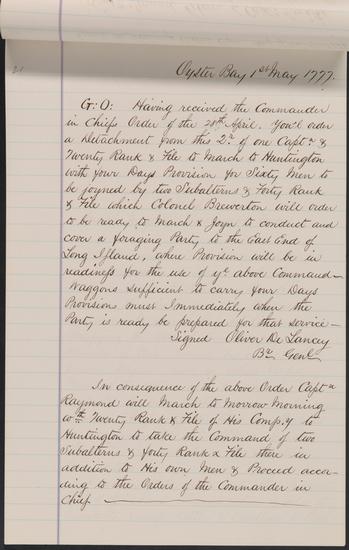 21
Oyster Bay 1st May 1777.
G: O: Having received the Commander
in Chiefs Order of the 28th April. You'l order
a Detachment from this 2r. of one Captn &
Twenty Rank & File to March to Huntington
with four Days Provision for Sixty Men to
be joyned by two Subalterns & Forty Rank
& File which Colonel Brewerton will order
to be ready to March & Joyn to conduct and
cover a foraging Party to the East End of
Long Island, where Provision will be in
readiness for the use of ye above Command—
Waggons sufficient to carry four Days
Provisions must Immediately when the
Party is ready be prepared for that service—
Signed Oliver De Lancey
Br Genl
In consequence of the above Order Captn
Raymond will March to Morrow Morning
wth Twenty Rank & File of His Comp.y to
Huntington to take the Command of two
Subalterns & forty Rank & File there in
addition to His own Men & Proceed accor-
ding to the Orders of the Commander in
Chief